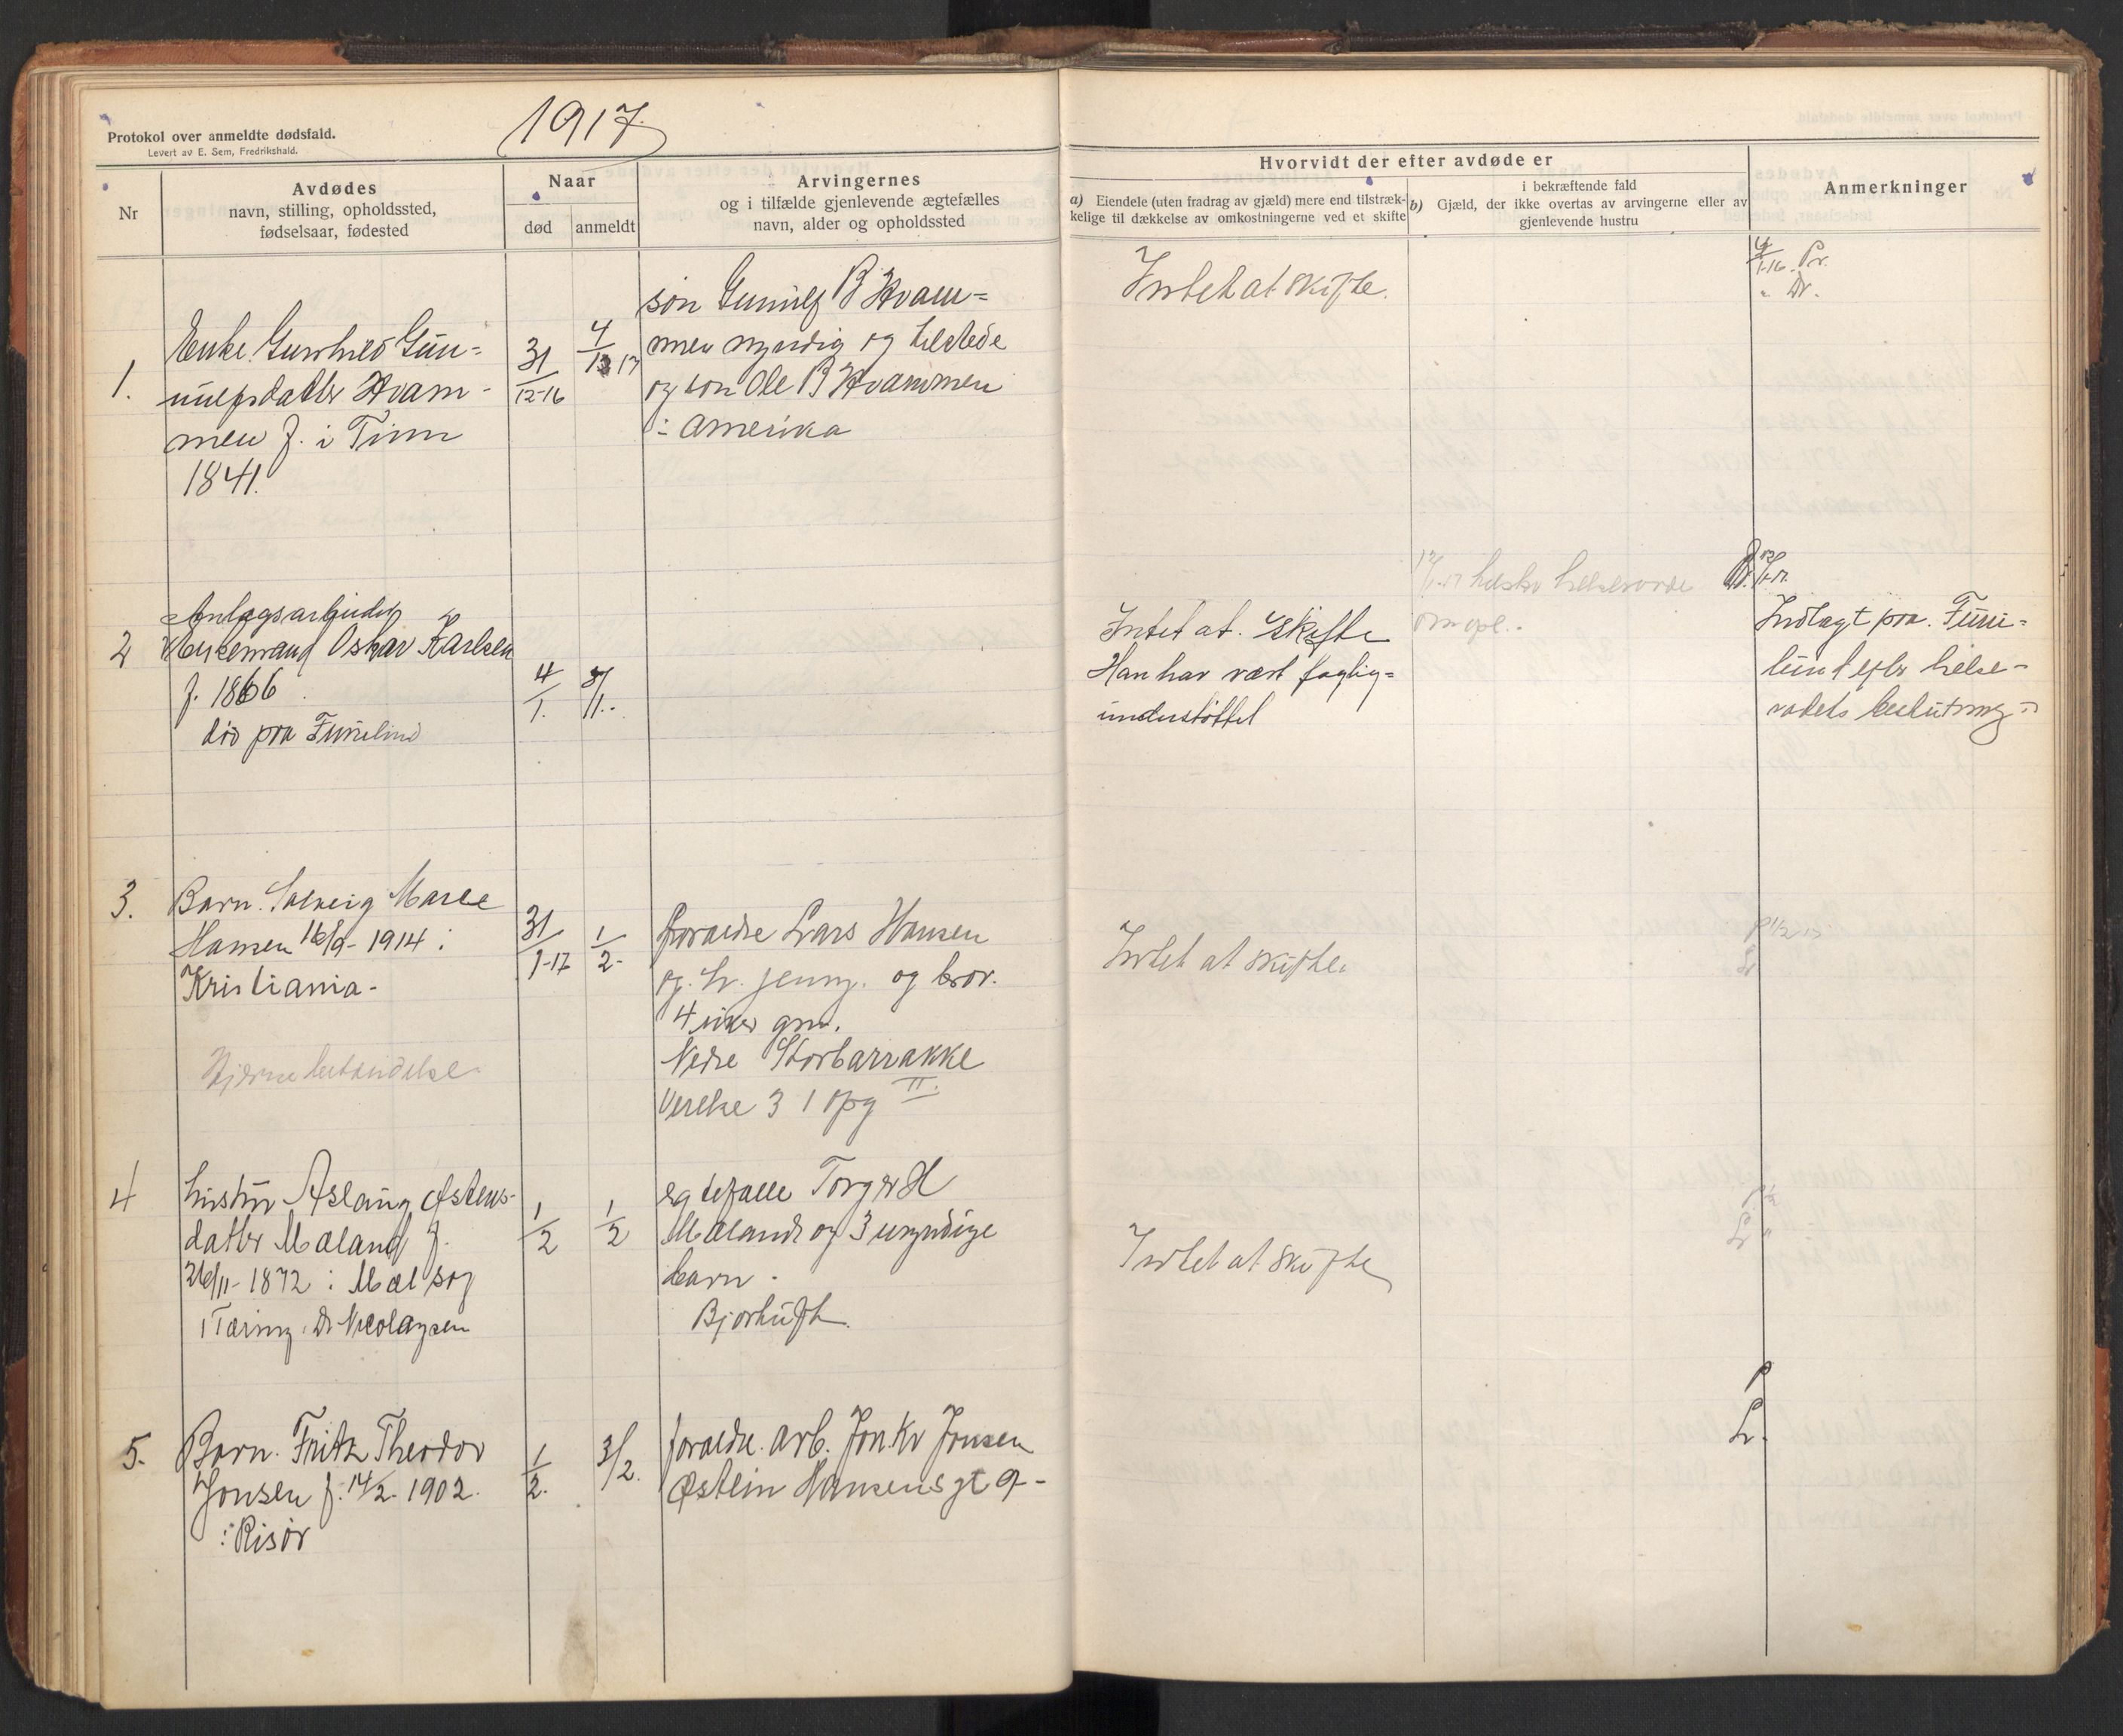 1917.
Protokol over anmeldte dødsfald.
Levert av E. Sem, Fredrikshald.
Nr
Avdødes
navn, stilling, opholdssted,
fødselsaar, fødested
Naar
død
anmeldt
Arvingernes
og i tilfælde gjenlevende ægtefælles
navn, alder og opholdssted
Hvorvidt der efter avdøde er
a) Eiendele (uten fradrag av gjæld) mere end tilstræk-
kelige til dækkelse av omkostningerne ved et skifte
i bekræftende fald
b) Gjæld, der ikke overtas av arvingerne eller av
gjenlevende hustru
Anmerkninger
1.
Enke Gunhild Gun-
nulfsdatter Hvam-
men f. i Tinn
1841.
31/12-16
4/1 17
søn Gunulf B Hvam=
men myndig og tilstede
og søn Ole B Hvammen
i Amerika
Intet at skifte.
4/1-16. Pr.
" Dr.
2
Anlægsarbeider
Enkemand Oskar Karlsen
f. 1866
død paa Furulund
4/1.
8/1..
Intet at skifte
Han har vært fattig=
understøttet
12/1-17
Pr. 12/1-17.
Indlagt paa Furu=
lund efter helse-
radets beslutning
3.
Barn. Solveig Marie
Hansen 16/9-1914 i
Kristiania-
Hjernebetændelse
31/1-17
1/2-
foraeldre Lars Hansen
og h. Jenny. og bror.
4 uker gm.
Nedre Storbarrakke
Verelse 3 1 opg II.
Intet at skifte.
P 1/2 17
4
hustru Aslaug Østens-
datter Mæland f.
26/11-1872 i Mæl sog
Tæring. Dr Nicolaysen
1/2
1/2
egtefælle Torger H
Mæland og 3 umyndige
barn.
Bjørhusft
Intet at skifte
5.
Barn. Fritz Theodor
Jonsen f. 14/2-1902.
i Risør
1/2.
3/2.
foraeldre. arb. Jon Kr Jonsen
Østein Hansens gt 9-
P